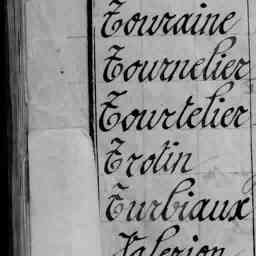 Touraine
Tournelier
Tourtelier
Trotin
Turbiaux
Valerion